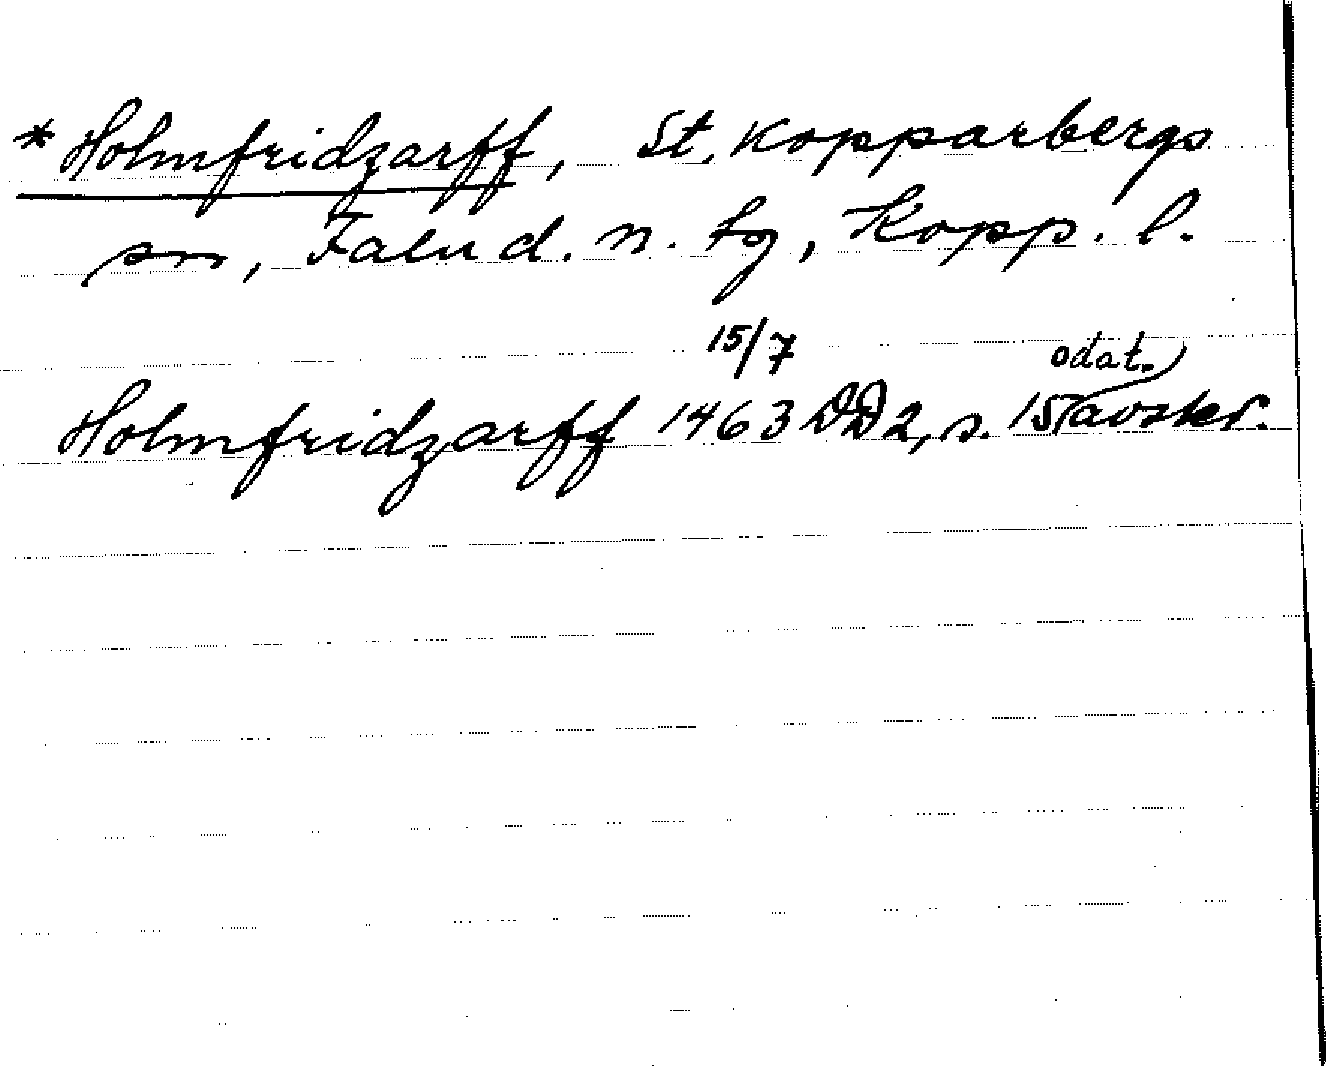 * Holmfridzarff, St. Kopparbergs
sn, Falu d. n. tg, Kopp. l.
Holmfridzarff 15/7 1463 DD2, s. 15 (odat. avskr.